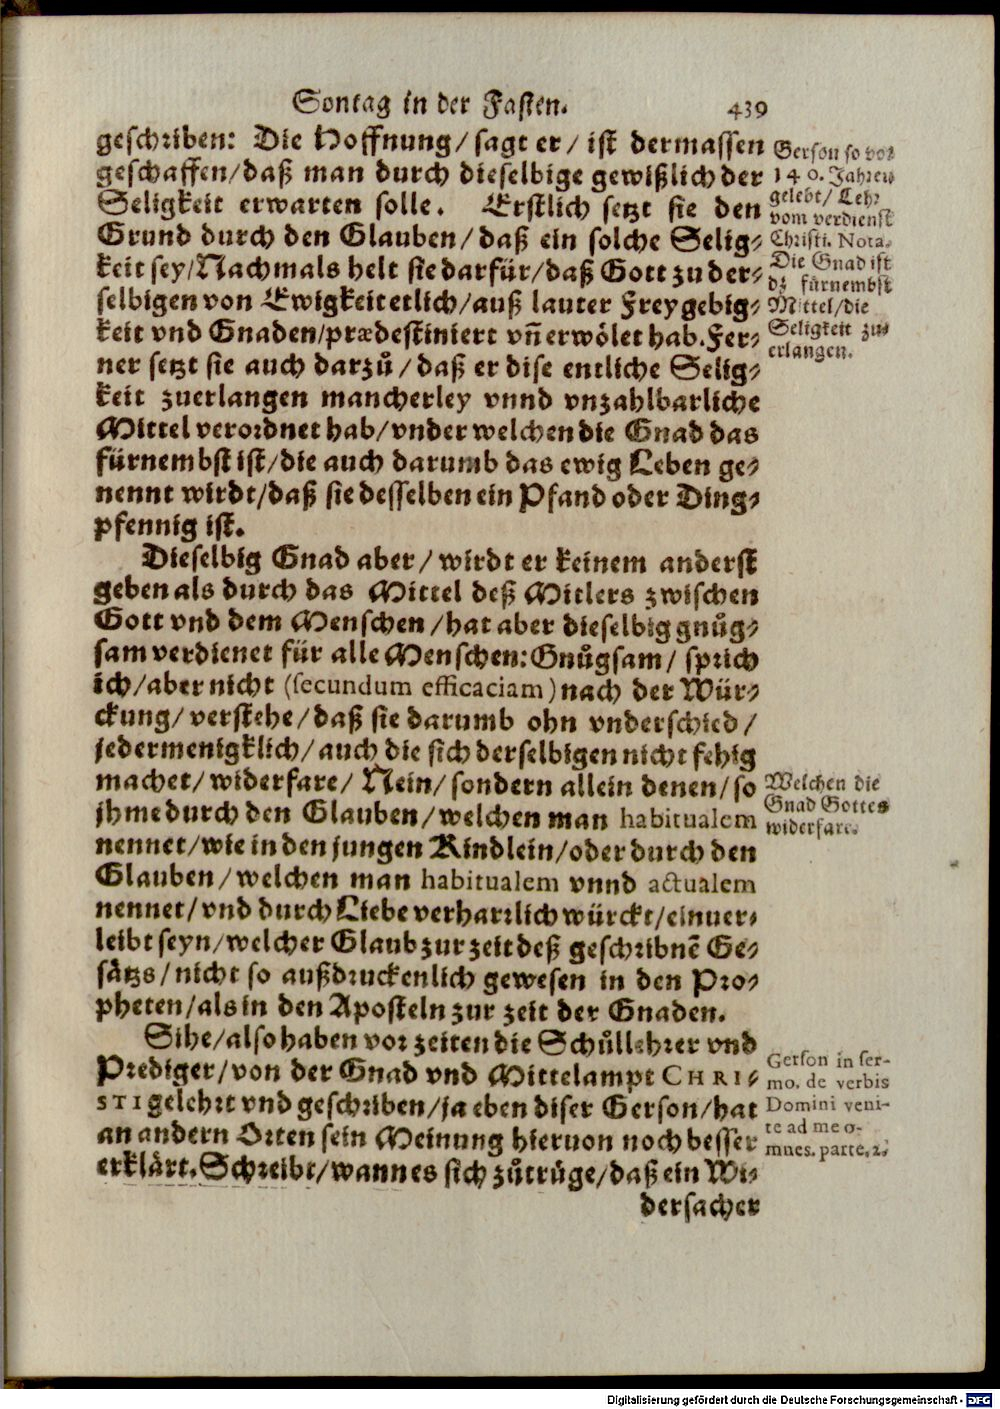 Sontag in der Fasten. 439
geschriben: Die Hoffnung/ sagt er/ ist dermassen
geschaffen/ daß man durch dieselbige gewißlich der
Seligkeit erwarten solle. Erstlich setzt sie den
Grund durch den Glauben/ daß ein solche Selig-
keit sey/ Nachmals helt sie darfür/ daß Gott zu der-
selbigen von Ewigkeit etlich/ auß lauter Freygebig-
keit vnd Gnaden/ prædestiniert vñ erwölet hab. Fer-
ner setzt sie auch darzů/ daß er dise entliche Selig-
keit zuerlangen mancherley vnnd vnzahlbarliche
Mittel verordnet hab/ vnder welchen die Gnad das
fürnembst ist/ die auch darumb das ewig Leben ge-
nennt wirdt/ daß sie desselben ein Pfand oder Ding-
pfennig ist.
Dieselbig Gnad aber/ wirdt er keinem anderst
geben als durch das Mittel deß Mitlers zwischen
Gott vnd dem Menschen/ hat aber dieselbig gnůg-
sam verdienet für alle Menschen: Gnůgsam/ sprich
ich/ aber nicht (secundum efficaciam) nach der Wür-
ckung/ verstehe/ daß sie darumb ohn vnderschied/
jedermenigklich/ auch die sich derselbigen nicht fehig
machet/ widerfare/ Nein/ sondern allein denen/ so
jhme durch den Glauben/ welchen man habitualem
nennet/ wie in den jungen Kindlein/ oder durch den
Glauben/ welchen man habitualem vnnd actualem
nennet/ vnd durch Liebe verharrlich würckt/ einuer-
leibt seyn/ welcher Glaub zur zeit deß geschribnē Ge-
sätzs/ nicht so außdruckenlich gewesen in den Pro-
pheten/ als in den Aposteln zur zeit der Gnaden.
Sihe/ also haben vor zeiten die Schůllehrer vnd
Prediger/ von der Gnad vnd Mittelampt CHRI-
STI gelehrt vnd geschriben/ ja eben diser Gerson/ hat
an andern Orten sein Meinung hieruon noch besser
erklärt. Schreibt/ wann es sich zůtrůge/ daß ein Wi-
dersacher
Gerson so vor
140. Jahren
gelebt/ Lehr
vom verdienst
Christi. Nota.
Die Gnad ist
dz fürnembst
Mittel/ die
Seligkeit zu-
erlangen.
Welchen die
Gnad Gottes
widerfare.
Gerson in ser-
mo. de verbis
Domini veni-
te ad me o-
mnes. parte. 2.
Digitalisierung gefördert durch die Deutsche Forschungsgemeinschaft - DFG